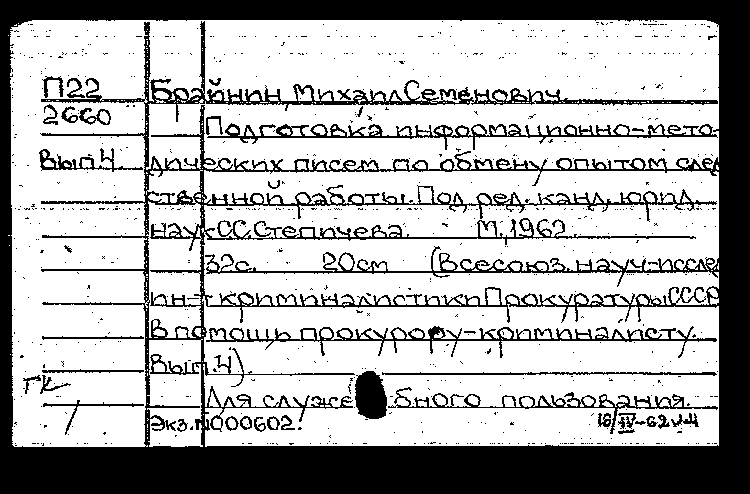 П22 Брайнин, Михаил Семенович.
2660 Подготовка информационно-мето-
Вып.4 дических писем по обмену опытом след
ственной работы. Под ред. канд. юрид.
наук С.С. Степичева. М., 1962.
32с. 20см (Всесоюз. науч-исслед
ин-т криминалистики Прокуратуры СССР
В помощь прокурору-криминалисту.
Вып.4).
ГК
Для служебного пользования.
Экз.№000602.